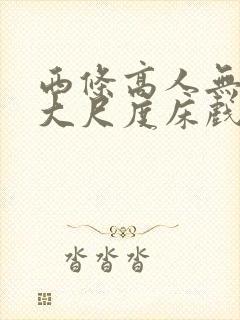 西條高人無
大尺度床戲
沓沓沓